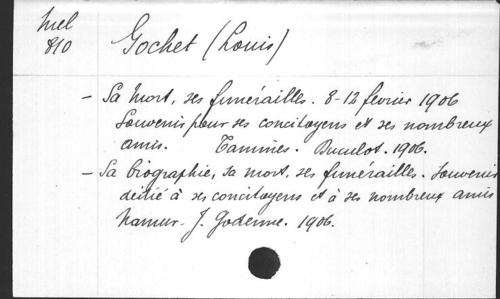 Mel
810
Gochet (Louis)
- Sa mort, ses funérailles. 8-12 février 1906
Souvenir pour ses concitoyens et ses nombreux
amis. Tamines. Duculot. 1906.
- Sa biographie, sa mort, ses funérailles. Souvenir
dédié à ses concitoyens et à ses nombreux amis
Namur. J. Godenne. 1906.